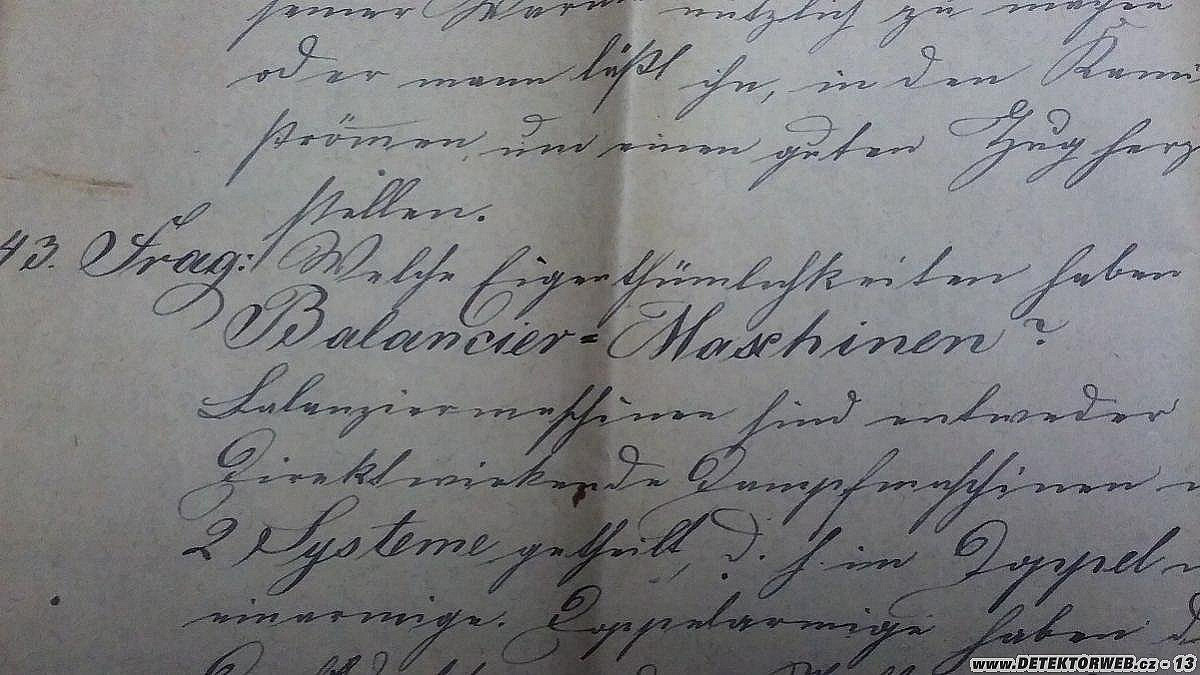 seiner Wärme nützlich zu machen
oder mann läßt ihn, in den Kami
strömen, um einen guten Zug herz
stellen.
43. Frag: Welche Eigenthümlichkeiten haben
Balancier=Maschinen?
Balanziermaschinen sind entweder
Direktwirkende Dampfmaschinen
2 Systeme getheilt, d. h. im Doppel
einarmige. Doppelarmige haben d
www.DETEKTORWEB.cz - 13